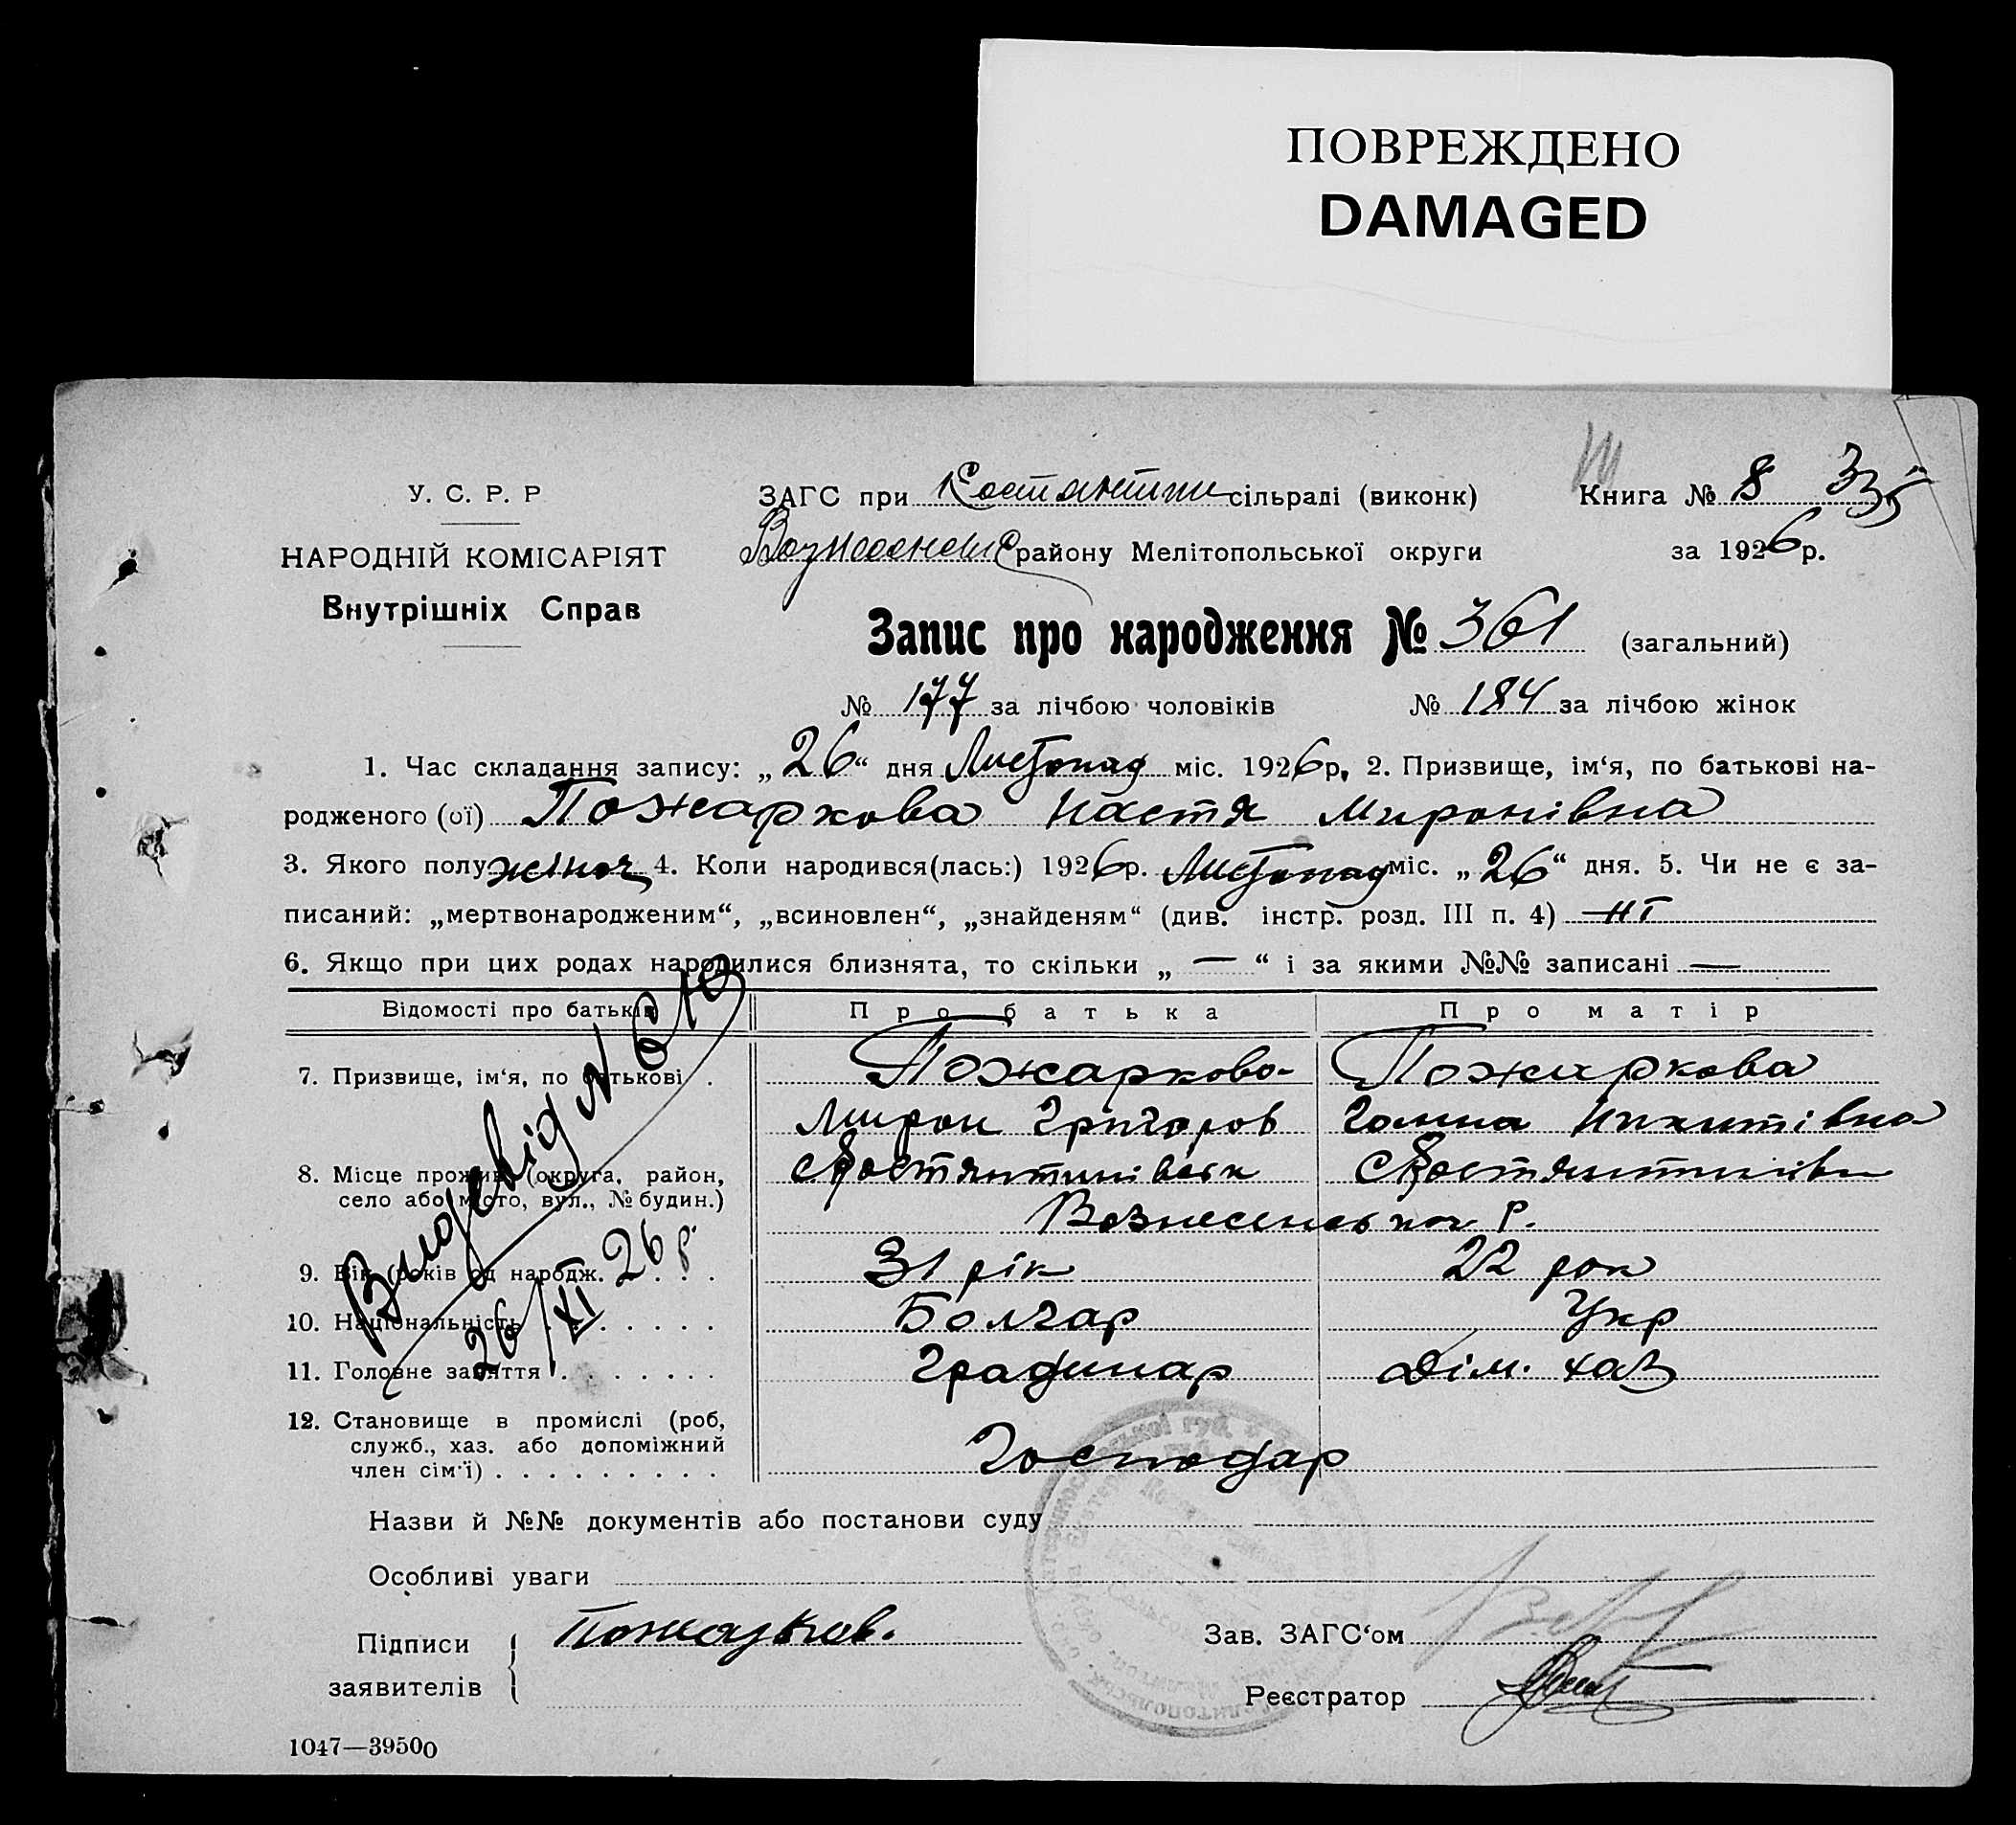 ПОВРЕЖДЕНО
DAMAGED
У. С. Р. Р
НАРОДНІЙ КОМІСАРІЯТ
Внутрішніх Справ
ЗАГС при Костянтин сільраді (виконк)
Книга № 8 335
району Мелітопольської округи
за 1926 р.
Запис про народження № 361 (загальний)
№ 177 за лічбою чоловіків № 184 за лічбою жінок
1. Час складання запису: „26“ дня Листопад міс. 1926 р. 2. Призвище, ім‘я, по батькові на-
родженого (ої) Пожаркова Настя Миронівна
3. Якого полу жіноч 4. Коли народився(лась:) 1926 р. Листопад міс. „26“ дня. 5. Чи не є за-
писаний: „мертвонародженим“, „всиновлен“, „знайденям“ (див. інстр. розд. III п. 4) — ні
6. Якщо при цих родах народилися близнята, то скільки „ — “ і за якими №№ записані —
Відомості про батьків
Про батька
Про матір
7. Призвище, ім‘я, по батькові .
Пожарково-
Пожаркова
Мирон Григоров
Галина Никитівна
8. Місце прожив. (округа, район,
село або місто, вул., № будин.)
с Костянтинівськ
с Костянтинівк
Вознесенськог Р.
9. Вік (років од народж. . . . .
31 рік
22 рок
10. Національність . . . . . .
Болгар
Укр
11. Головне заняття . . . . . . .
Градинар
Дім. хаз
12. Становище в промислі (роб,
служб., хаз. або допоміжний
член сім‘ї) . . . . . . . . .
Господар
26/XI 26 р.
Назви й №№ документів або постанови суду
Особливі уваги
Підписи
заявителів
Пожарков.
Зав. ЗАГС‘ом
Реєстратор
1047—39500